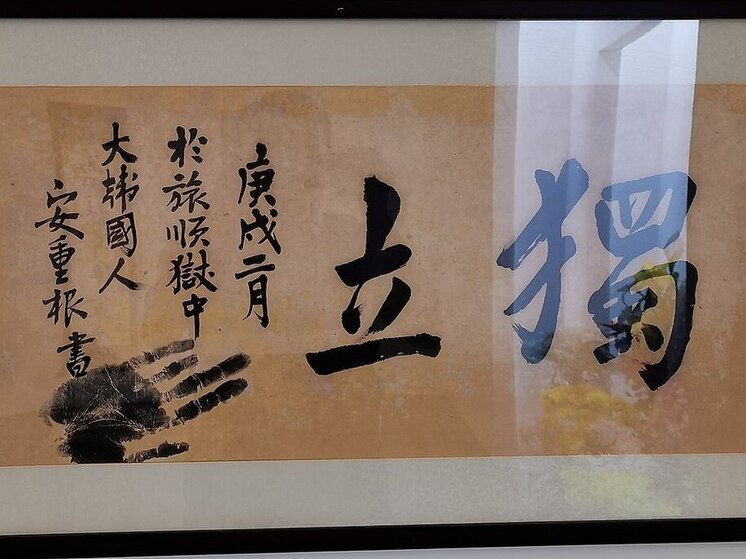 獨立
庚戌二月
於旅順獄中
大韩國人
安重根書